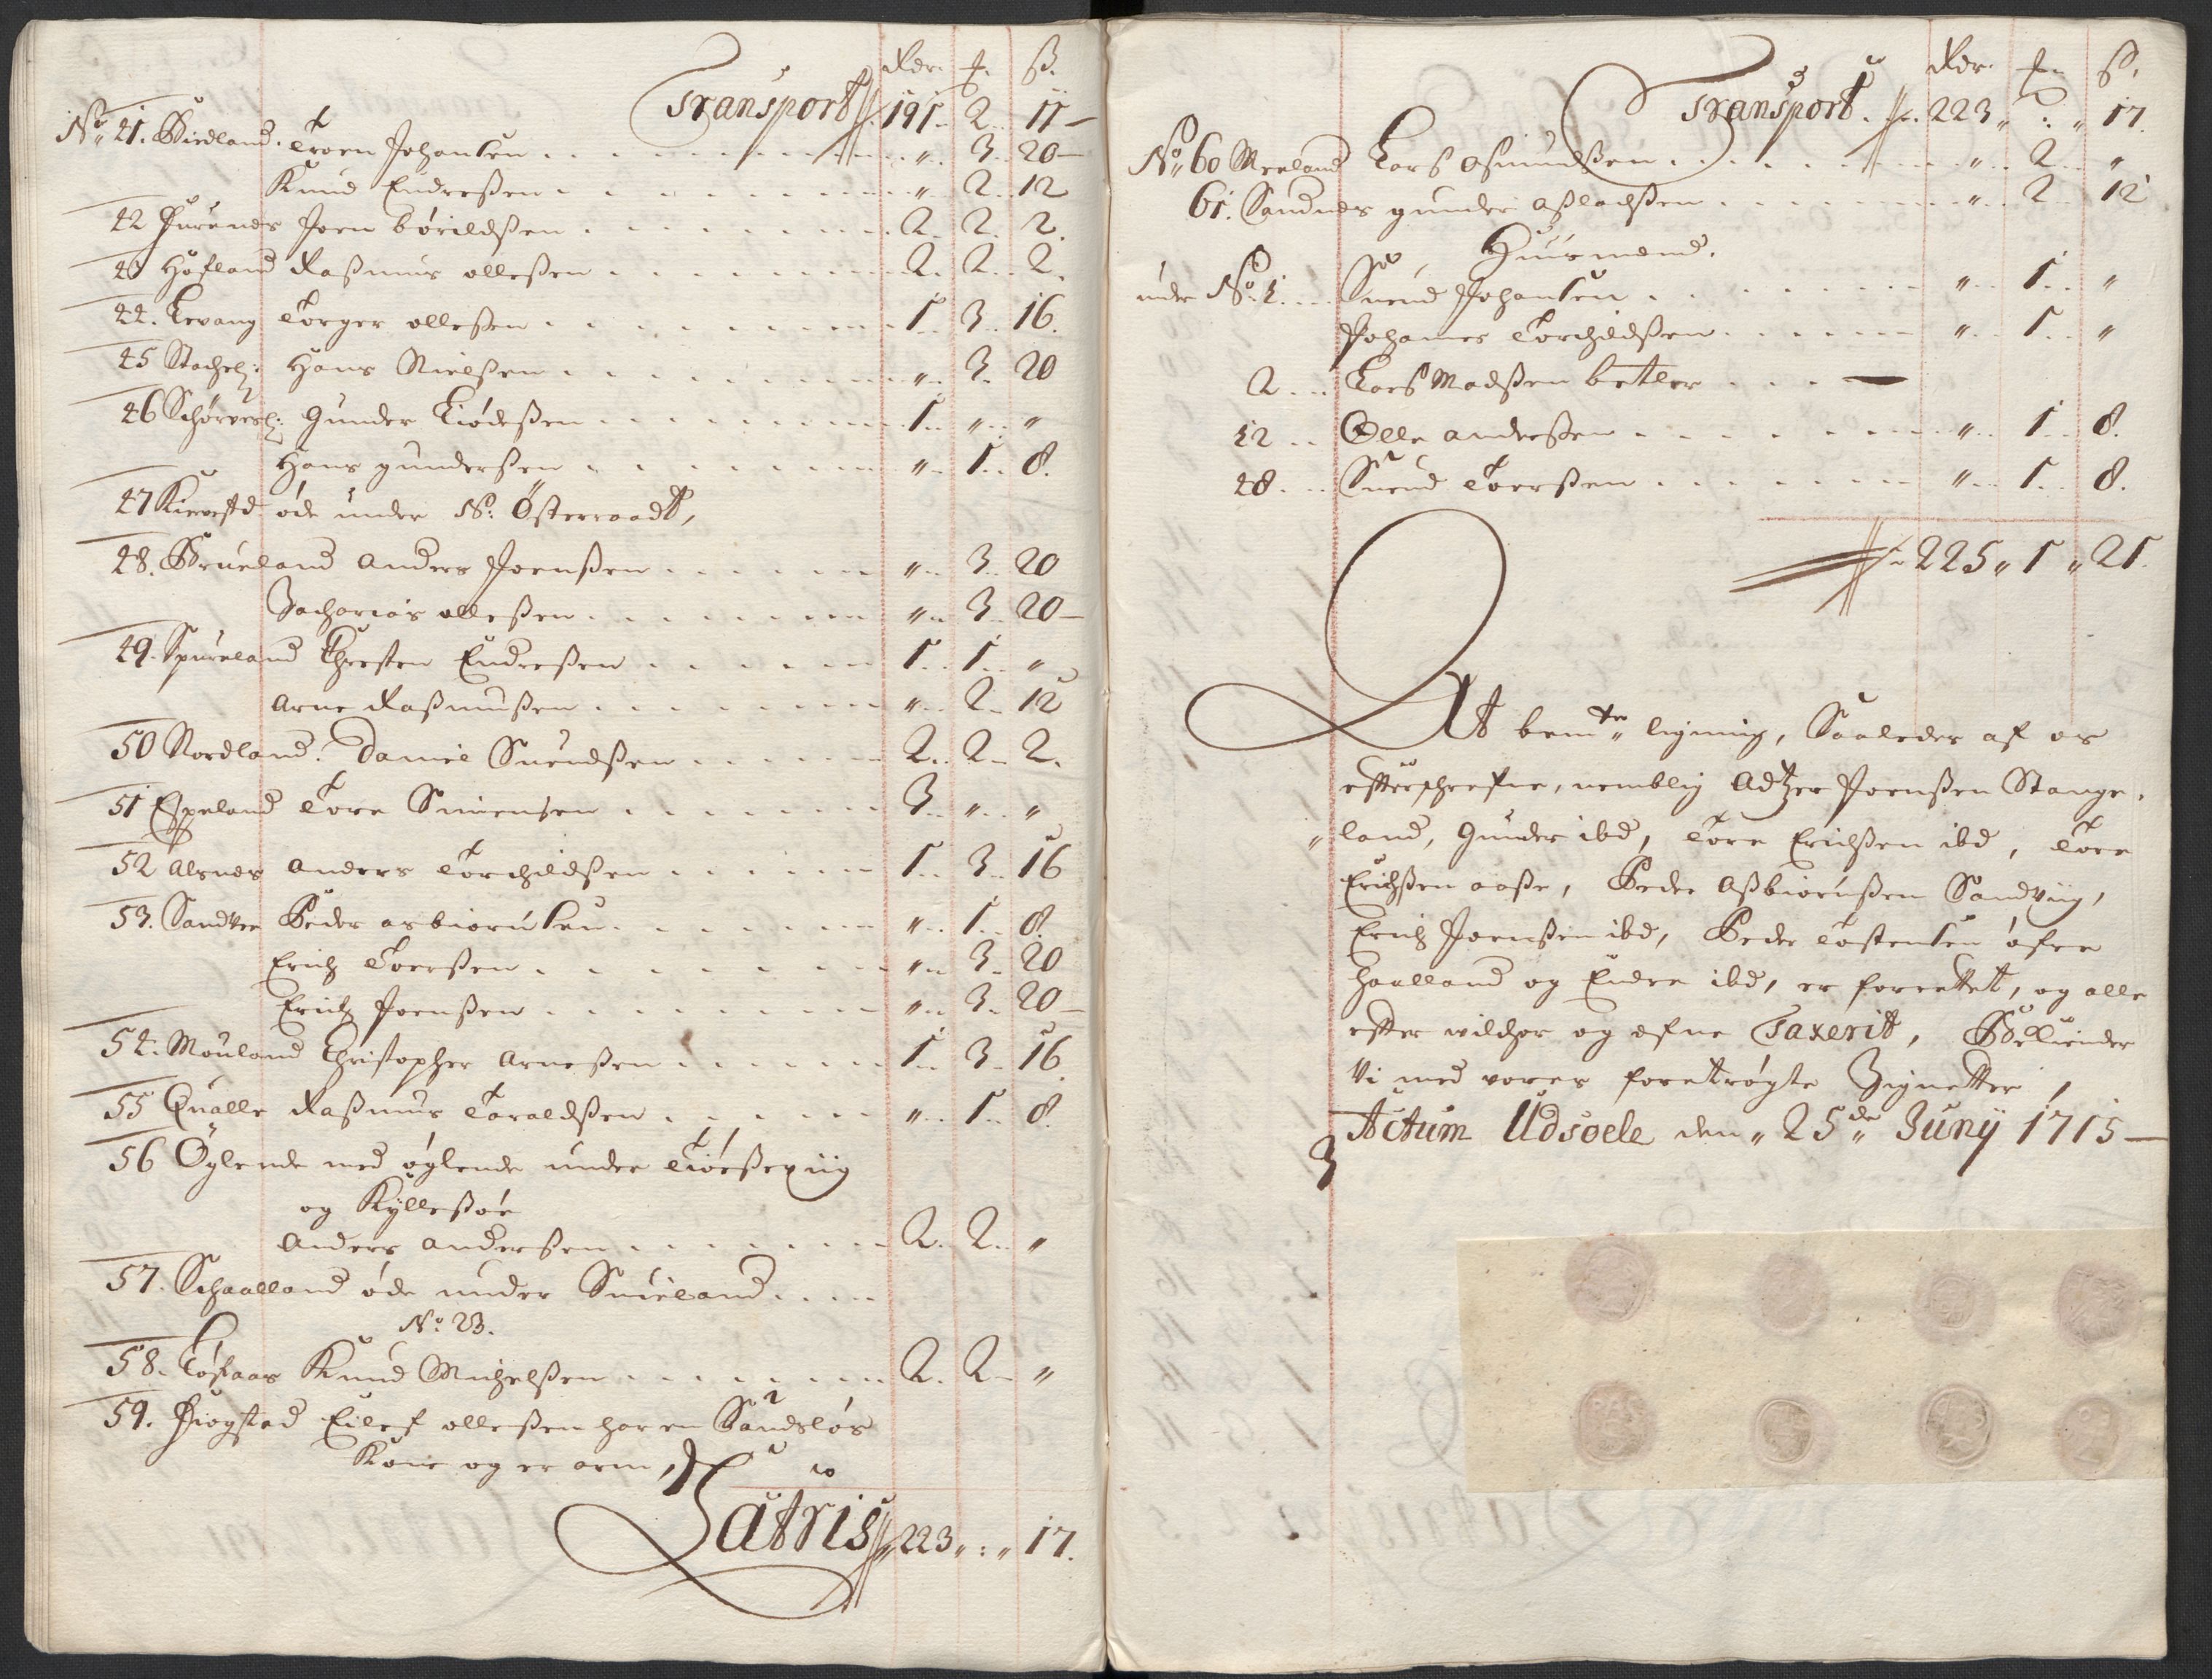 Rdr. ƒ. ß.
Transport // 191 .. 2 .. 11 —
No 41. Birdland. Troen Johansen . . . „ .. 3 .. 20 —
Knud Endreßen . . . „ 2 .. 12
42 Hurenes Joen börildßen . . . 2 .. 2 .. 2.
43 Høfland Raßmus olleßen . . . 2 .. 2 .. 2.
44. Levang Torger olleßen . . . 1 .. 3 .. 16.
45 Stachel: Hans Nielßen . . . „ .. 3 .. 20
46 Schørvesl: Gunder Tiødeßen . . . 1 .. „ .. „
Hans gunderßen . . . „ .. 1 .. 8.
47 øde under No: Østerraadt,
48. Brueland Anders Joenßen . . . „ .. 3 .. 20
Zacharias olleßen . . . „ .. 3 .. 20 —
49. Spureland Thresten Endreßen . . . 1 .. 1 .. „
Arne Raßmußen . . . „ .. 2 .. 12
50 Nordland. Daniel Suendßen . . . 2 .. 2 .. 2.
51 Espeland Tore Simensen . . . 3 .. „ .. „
52 Alsnes Anders Torchildßen . . . 1 .. 3 .. 16
53. Sandvee Peder asbiørnsen . . . „ .. 1 .. 8.
Erich Toerßen . . . „ .. 3 .. 20
Erich Joenßen . . . „ .. 3 .. 20 —
54. Mouland Christopher Arneßen . . . 1 .. 3 .. 16
55 Qualle Raßmus Taraldßen . . . „ .. 1 .. 8.
56 Öglende med øglende under
og Kÿlleßøe
Anders anderßen . . . 2 .. 2 .. „
57. Schaalland øde under Smieland . . .
No: 23.
58. Tøfaas Knud Michelßen . . . 2 .. 2 .. „
59. Hiogstad Eilef olleßen har en Sandsløs
Kone og er arm,
Latris // 223 „ : „ 17.
Rdr. ƒ. ß.
Transport . // . 223 „ : „ 17.
No 60 Meeland Lars Asmundßen . . . „ .. 2 .. „
61. Sandnes gunder aßlachßen . . . „ .. 2 .. 12
Huusmænd.
under No: 1 . . Suend Johansen . . . „ .. 1 .. „
Johannes Torchildßen . . . „ .. 1 .. „
2 . . Lars Madßen betler . . . —
12 . . Olle anderßen . . . „ .. 1 .. 8.
48 . . Suend Toerßen . . . „ .. 1 .. 8.
// 225 „ 1 „ 21.
At bemte ligning, Saaledes af os
effterschrefne, nemblig Adtzer Joenßen Stange-
„ land, Gunder ibd, Tore Erichßen ibd, Tore
Erichßen aaße, Peder Aßbiørnßen Sandviig,
Erich Joenßen ibd, Peder Tostensen øfre
Haalland og Endre ibd, er forrettet, og alle
effter wilchor og æfne Taxerit, Bekiender
Vi med vores foretrøgte Zignetter,
Actum Udsoele den „ 25de Junÿ 1715 —